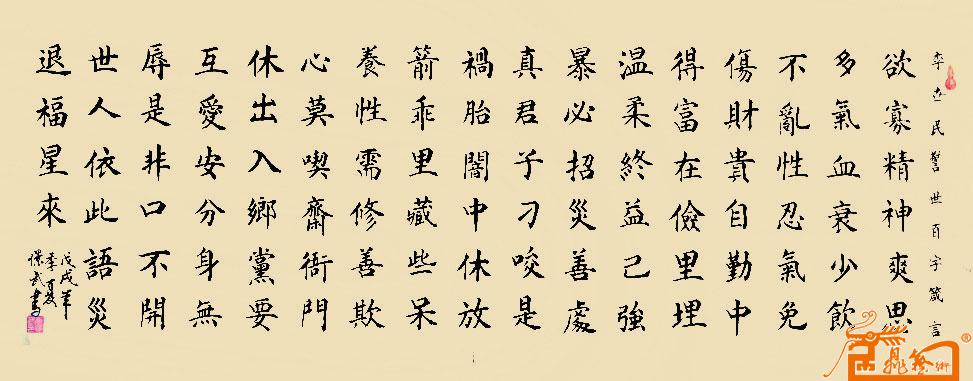 李世民警世百字箴言
欲寡精神爽思
多氣血衰少飲
不亂性忍氣免
傷財貴自勤中
得富在儉里埋
温柔終益己強
暴必招災善處
真君子刁唆是
禍胎闇中休放
箭乖里藏些呆
養性需修善欺
心莫喫齋衙門
休出入鄉黨要
互愛安分身無
辱是非口不開
世人依此語災
退福星來
戊戌年
季夏
武書